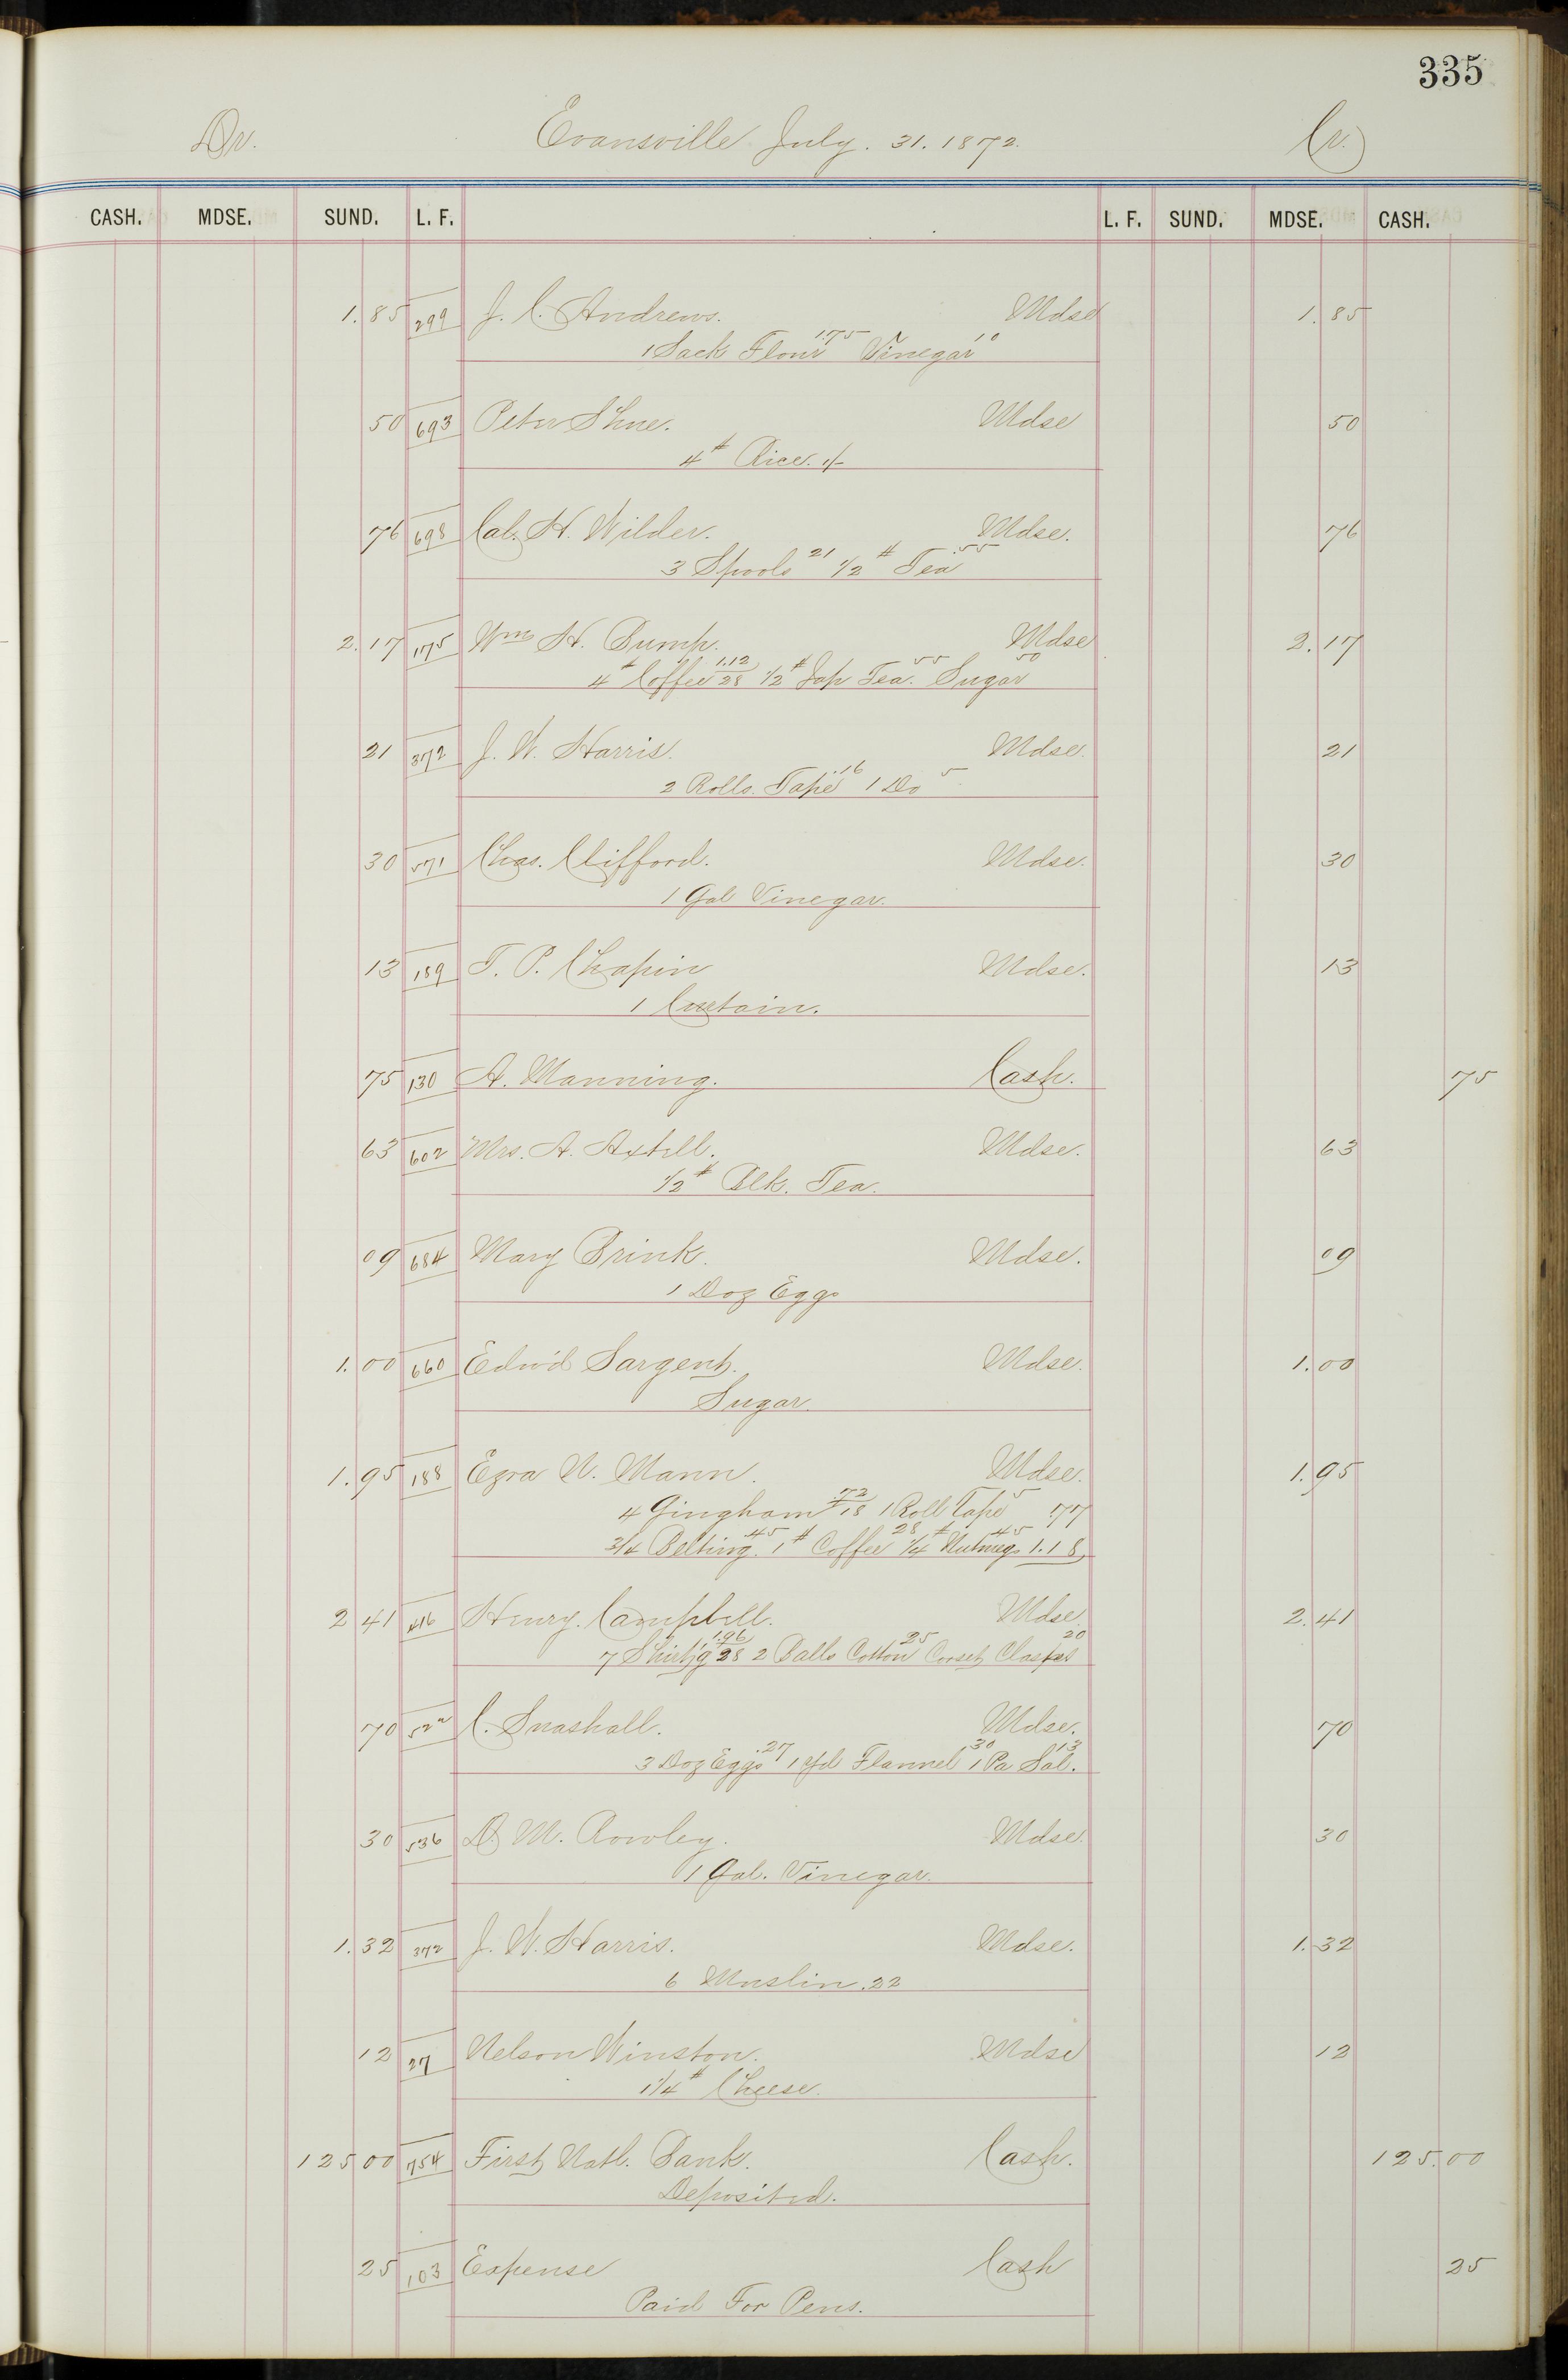 335
Dr. Evansville July. 31. 1872. Cr.
CASH. MDSE. SUND. L. F. L. F. SUND. MDSE. CASH.
1.85 299 J. C. Andrews. Mdse 1.85
1 Sack Flour 1.75 Vinegar 10
50 693 Peter Shne. Mdse 50
4# Rice. 1/-
76 698 Cal. H. Wilder. Mdse. 76
3 Spools 21 1/2# Tea 55
2.17 175 Wm H. Bump. Mdse 2.17
4# Coffee 1.12 28 1/2# Jap Tea. 55 Sugar 50
21 372 J. W. Harris. Mdse. 21
2 Rolls. Tape .16 1 Do 5
30 571 Chas. Clifford. Mdse. 30
1 Gal Vinegar.
13 189 T. P. Chapin Mdse. 13
1 Curtain.
75 130 A. Manning. Cash. 75
63 602 Mrs. A. Axtell. Mdse. 63
1/2# Blk. Tea.
09 684 Mary Brink. Mdse. 09
1 Doz Eggs
1.00 660 Edw'd Sargent. Mdse. 1.00
Sugar.
1.95 188 Ezra W. Mann. Mdse. 1.95
4 Gingham .72 18 1 Roll Tape 5 77
3/4 Belting. .45 1# Coffee 28 1/4# Nutmegs 45 1.18
2 41 416 Henry. Campbell. Mdse. 2.41
7 Shirt'g 1.96 28 2 Balls Cotton 25 Corset Clasps 20
70 522 C. Snashall. Mdse. 70
3 Doz Eggs .27 1 yd Flannel 30 1 Pa Sal. 13
30 536 D. M. Rowley. Mdse. 30
1 Gal. Vinegar.
1.32 372 J. W. Harris. Mdse. 1.32
6 Muslin .22
12 27 Nelson Winston. Mdse 12
1 1/4# Cheese.
125 00 754 First Natl. Bank. Cash. 125.00
Deposited.
25 103 Expense Cash 25
Paid For Pens.